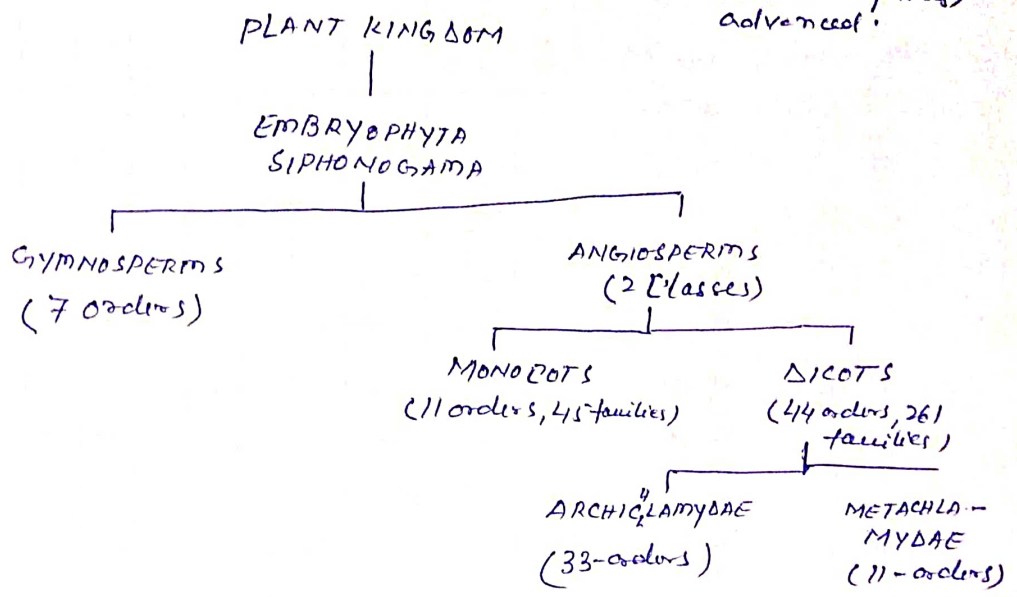 PLANT KINGDOM
advanced.
EMBRYOPHYTA
SIPHONOGAMA
GYMNOSPERMS
(7 orders)
ANGIOSPERMS
(2 Classes)
MONOCOTS
(11 orders, 45 families)
DICOTS
(44 orders, 261
families)
ARCHICHLAMYDAE
(33-orders)
METACHLA-
MYDAE
(11-orders)